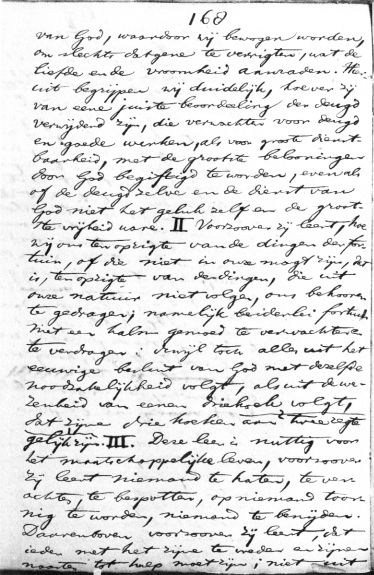 168
van God, waardoor wij bewogen worden,
om slechts datgene te verrigten, wat de
liefde en de vroomheid aanraden. Hier
uit begrijpen wij duidelijk, hoe ver zij
van eene juiste beoordeeling der deugd
verwijderd zijn, die verwachten voor deugd
en goede werken, als voor groote dienst-
baarheid, met de grootste belooningen
door God begiftigd te worden, even als
of de deugd zelve en de dienst van
God niet het geluk zelf en de groot-
ste vrijheid ware. II Voorzoover zij leert, hoe
wij ons ten opzigte van de dingen der for-
tuin, of die niet in onze magt zijn, dat
is, ten opzigte van de dingen, die uit
onze natuur niet volgen, ons behooren
te gedragen; namelijk beiderlei fortuin
met een kalm gemoed te verwachten en
te verdragen: dewijl toch alles uit het
eeuwige besluit van God met dezelfde
noodzakelijkheid volgt, als uit de we-
zenheid van eenen driehoek volgt,
dat zijne drie hoeken aan twee regte
gelijk zijn. III. Deze leer is nuttig voor
het maatschappelijke leven, voorzoover
zij leert niemand te haten, te ver-
achten, te bespotten, op niemand toor-
nig te worden, niemand te benijden.
Daarenboven voorzoover zij leert, dat
ieder met het zijne te vreden en zijnen
naasten tot hulp moet zijn; niet uit